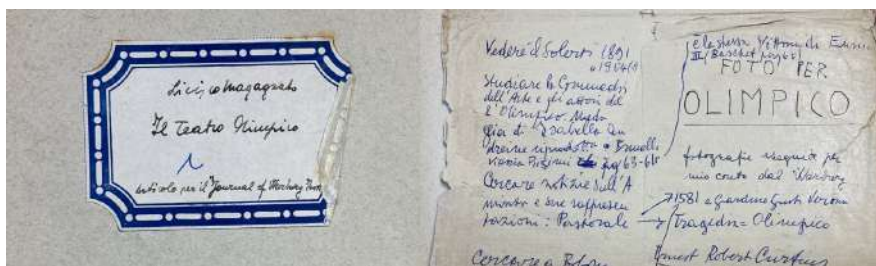 Licisco Magagnato
Il Teatro Olimpico
articolo per il "Journal of Warburg
Vedere il Solerti 1891
Studiare la Commedia
dell'Arte e gli attori del
l'Olimpico.
di Isabella An
dreini riprodotta a
pag 63-64
Cercare notizie sull'A
minta e sue rappresen
tazioni: Pastorale
Cercare a
è la stessa Vittoria di
FOTO PER
OLIMPICO
fotografie eseguite per
mio conto dal Warburg
1581 a Giardino Giusti Verona
Tragedia = Olimpico
Ernest Robert Curtius